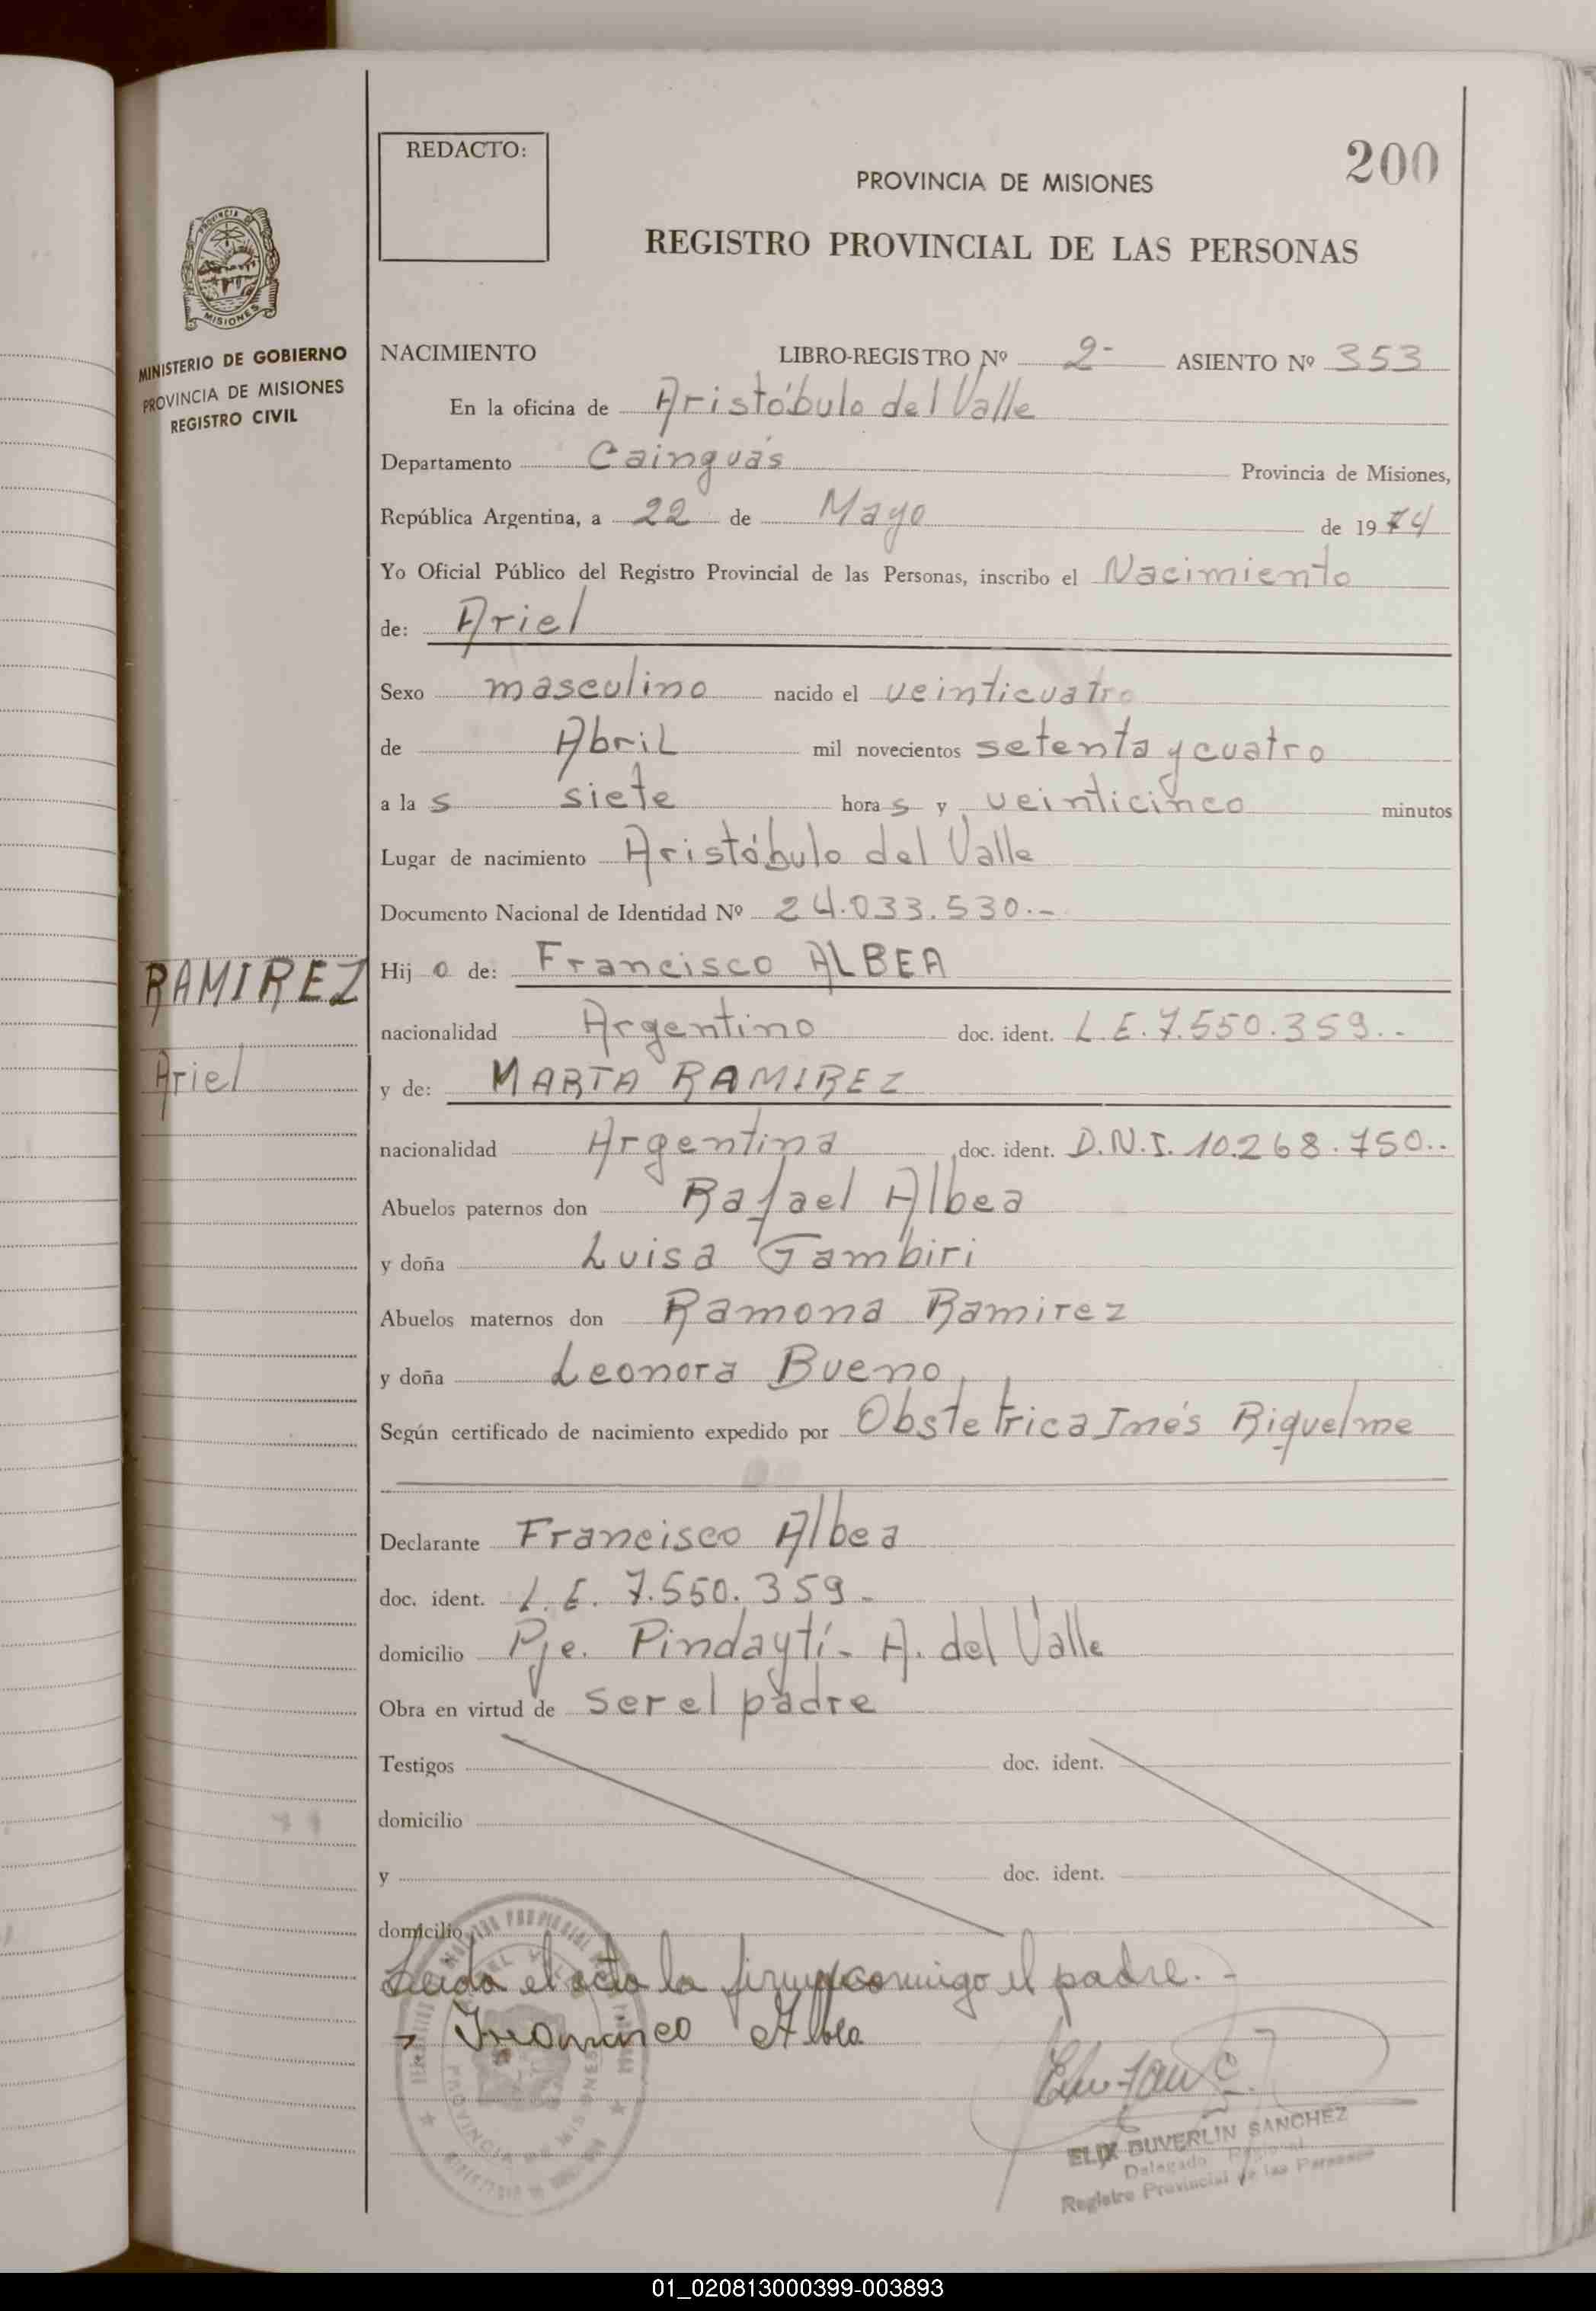 REDACTO:
200
PROVINCIA DE MISIONES
REGISTRO PROVINCIAL DE LAS PERSONAS
PROVINCIA DE
MISIONES
MINISTERIO DE GOBIERNO
PROVINCIA DE MISIONES
REGISTRO CIVIL
NACIMIENTO LIBRO-REGISTRO Nº 2- ASIENTO Nº 353
En la oficina de Aristóbulo del Valle
Departamento Cainguás Provincia de Misiones,
República Argentina, a 22 de Mayo de 1974
Yo Oficial Público del Registro Provincial de las Personas, inscribo el Nacimiento
de: Ariel
Sexo masculino nacido el veinticuatro
de Abril mil novecientos setenta y cuatro
a la s siete hora s y veinticinco minutos
Lugar de nacimiento Aristóbulo del Valle
Documento Nacional de Identidad Nº 24.033.530.-
RAMIREZ
Ariel
Hij o de: Francisco ALBEA
nacionalidad Argentino doc. ident. L.E. 7.550.359.-
y de: MARTA RAMIREZ
nacionalidad Argentina doc. ident. D.N.I. 10.268.750..
Abuelos paternos don Rafael Albea
y doña Luisa Gambiri
Abuelos maternos don Ramona Ramirez
y doña Leonora Bueno
Según certificado de nacimiento expedido por Obstetrica Inés Riquelme
Declarante Francisco Albea
doc. ident. L.E. 7.550.359.-
domicilio Pje. Pindaytí- A. del Valle
Obra en virtud de ser el padre
Testigos doc. ident.
domicilio
y doc. ident.
domicilio
Leida el acta la firma conmigo el padre.-
Francisco Albea
ELIX DUVERLIN SANCHEZ
Delegado Regional
Registro Provincial de las Personas
01_020813000399-003893